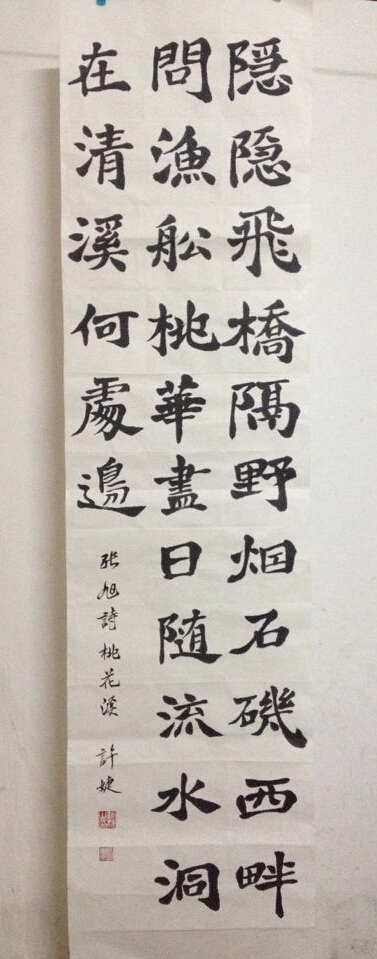 隱隐飛橋隔野烟石磯西畔
問漁舩桃華盡日随流水洞
在清溪何處邊
张旭詩桃花溪 許婕